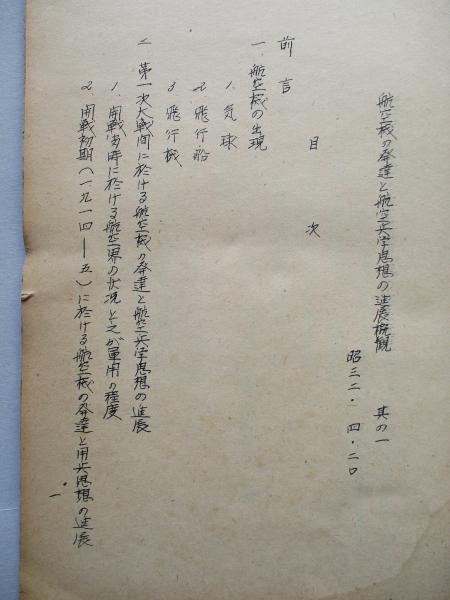 航空機の発達と航空兵学思想の進展概観　其の一
昭三二・四・二〇
目次
前言
一　航空機の出現
1　気球
2　飛行船
3　飛行機
二　第一次大戦間に於ける航空機の発達と航空兵学思想の進展
1　開戦当時に於ける航空界の状況と之が軍用の程度
2　開戦初期（一九一四―五）に於ける航空機の発達と用兵思想の進展
一